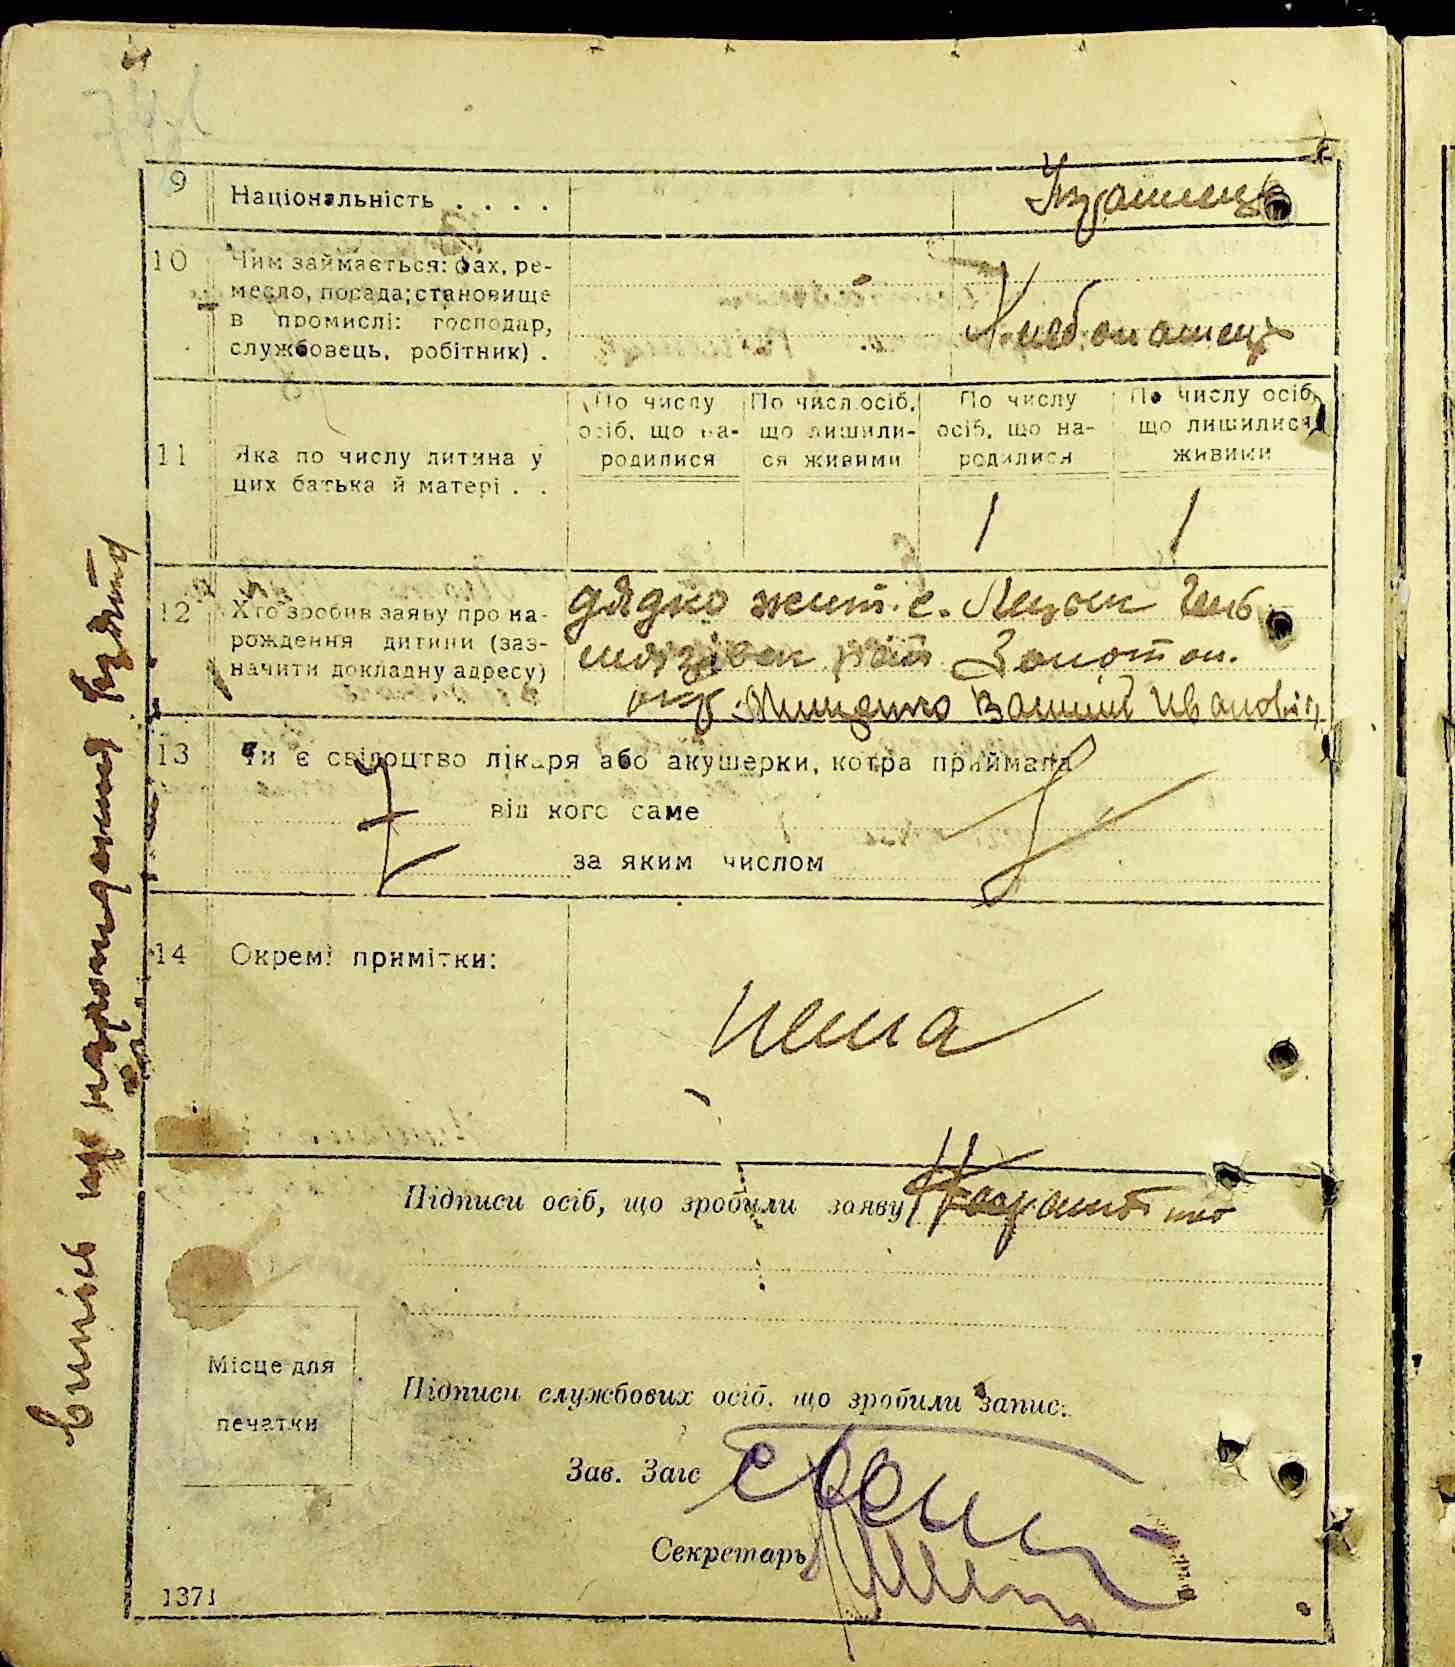 9 Національність . . . . Українец
10 Чим займається: фах, ре-
месло, посада; становище
в промислі: господар,
службовець, робітник) . Хлебопашец
По числу осіб, що на- родилися
По числ.осіб, що лишили- ся живими
По числу осіб, що на- родилися
По числу осіб, що лишилися живими
11 Яка по числу дитина у
цих батька й матері . .
1 1
12 Хто зробив заяву про на-
рождення дитини (заз-
начити докладну адресу)
дядко жит. с.
Золотон.
окр. Мищенко Василий Иванович
13 Чи є свідоцтво лікаря або акушерки, котра приймала
від кого саме
за яким числом
14 Окремі примітки:
нема
Підписи осіб, що зробили заяву
Місце для
печатки
Підписи службових осіб, що зробили запис:
Зав. Загс
Секретарь
1371
Випись про народження